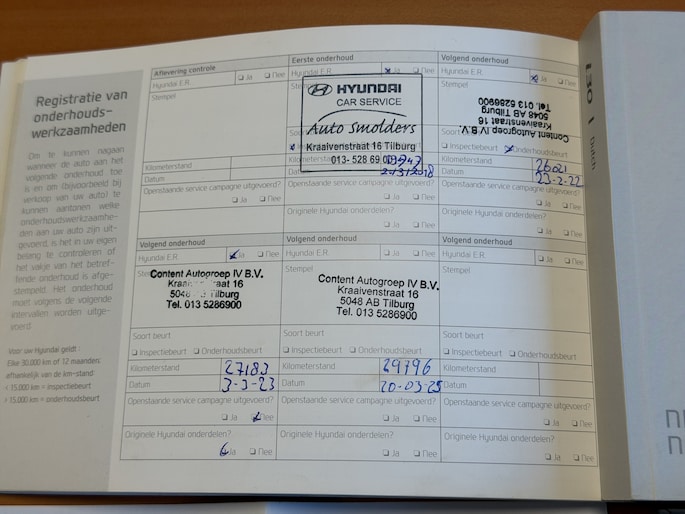 Registratie van
onderhouds-
werkzaamheden
Om te kunnen nagaan
wanneer de auto aan het
volgende onderhoud toe
is en om (bijvoorbeeld bij
verkoop van uw auto) te
kunnen aantonen welke
onderhoudswerkzaamhe-
den aan uw auto zijn uit-
gevoerd, is het in uw eigen
belang te controleren of
het vakje van het betref-
fende onderhoud is afge-
stempeld. Het onderhoud
moet volgens de volgende
intervallen worden uitge-
voerd
Voor uw Hyundai geldt:
Elke 30.000 km of 12 maanden,
afhankelijk van de km-stand
< 15.000 km = inspectiebeurt
> 15.000 km = onderhoudsbeurt
Aflevering controle
Hyundai E.R. Ja Nee
Stempel
Kilometerstand
Datum
Openstaande service campagne uitgevoerd?
Ja Nee
Eerste onderhoud
Hyundai E.R. Ja Nee
HYUNDAI
CAR SERVICE
Auto Smolders
Kraaivenstraat 16 Tilburg
013- 528 69 00
Kilometerstand
Datum
Openstaande service campagne uitgevoerd?
Ja Nee
Originele Hyundai onderdelen?
Ja Nee
Volgend onderhoud
Hyundai E.R. Ja Nee
Stempel
Content Autogroep IV B.V.
Kraaivenstraat 16
5048 AB Tilburg
Tel. 013 5286900
Soort beurt
Inspectiebeurt Onderhoudsbeurt
Kilometerstand 26021
Datum 23-2-22
Openstaande service campagne uitgevoerd?
Ja Nee
Originele Hyundai onderdelen?
Ja Nee
Volgend onderhoud
Hyundai E.R. Ja Nee
Content Autogroep IV B.V.
5048 Tilburg
Tel. 013 5286900
Soort beurt
Inspectiebeurt Onderhoudsbeurt
Kilometerstand 27183
Datum 3-3-23
Openstaande service campagne uitgevoerd?
Ja Nee
Originele Hyundai onderdelen?
Ja Nee
Volgend onderhoud
Hyundai E.R. Ja Nee
Stempel
Content Autogroep IV B.V.
Kraaivenstraat 16
5048 AB Tilburg
Tel. 013 5286900
Soort beurt
Inspectiebeurt Onderhoudsbeurt
Kilometerstand 29796
Datum 20-03-25
Openstaande service campagne uitgevoerd?
Ja Nee
Originele Hyundai onderdelen?
Ja Nee
Volgend onderhoud
Hyundai E.R. Ja Nee
Stempel
Soort beurt
Inspectiebeurt Onderhoudsbeurt
Kilometerstand
Datum
Openstaande service campagne uitgevoerd?
Ja Nee
Originele Hyundai onderdelen?
Ja Nee
i30 | Dutch